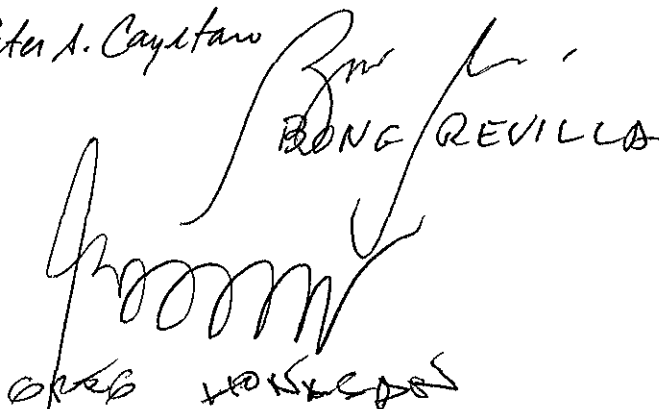 ter S. Cayetano
BONG REVILLA
GREG HONASAN